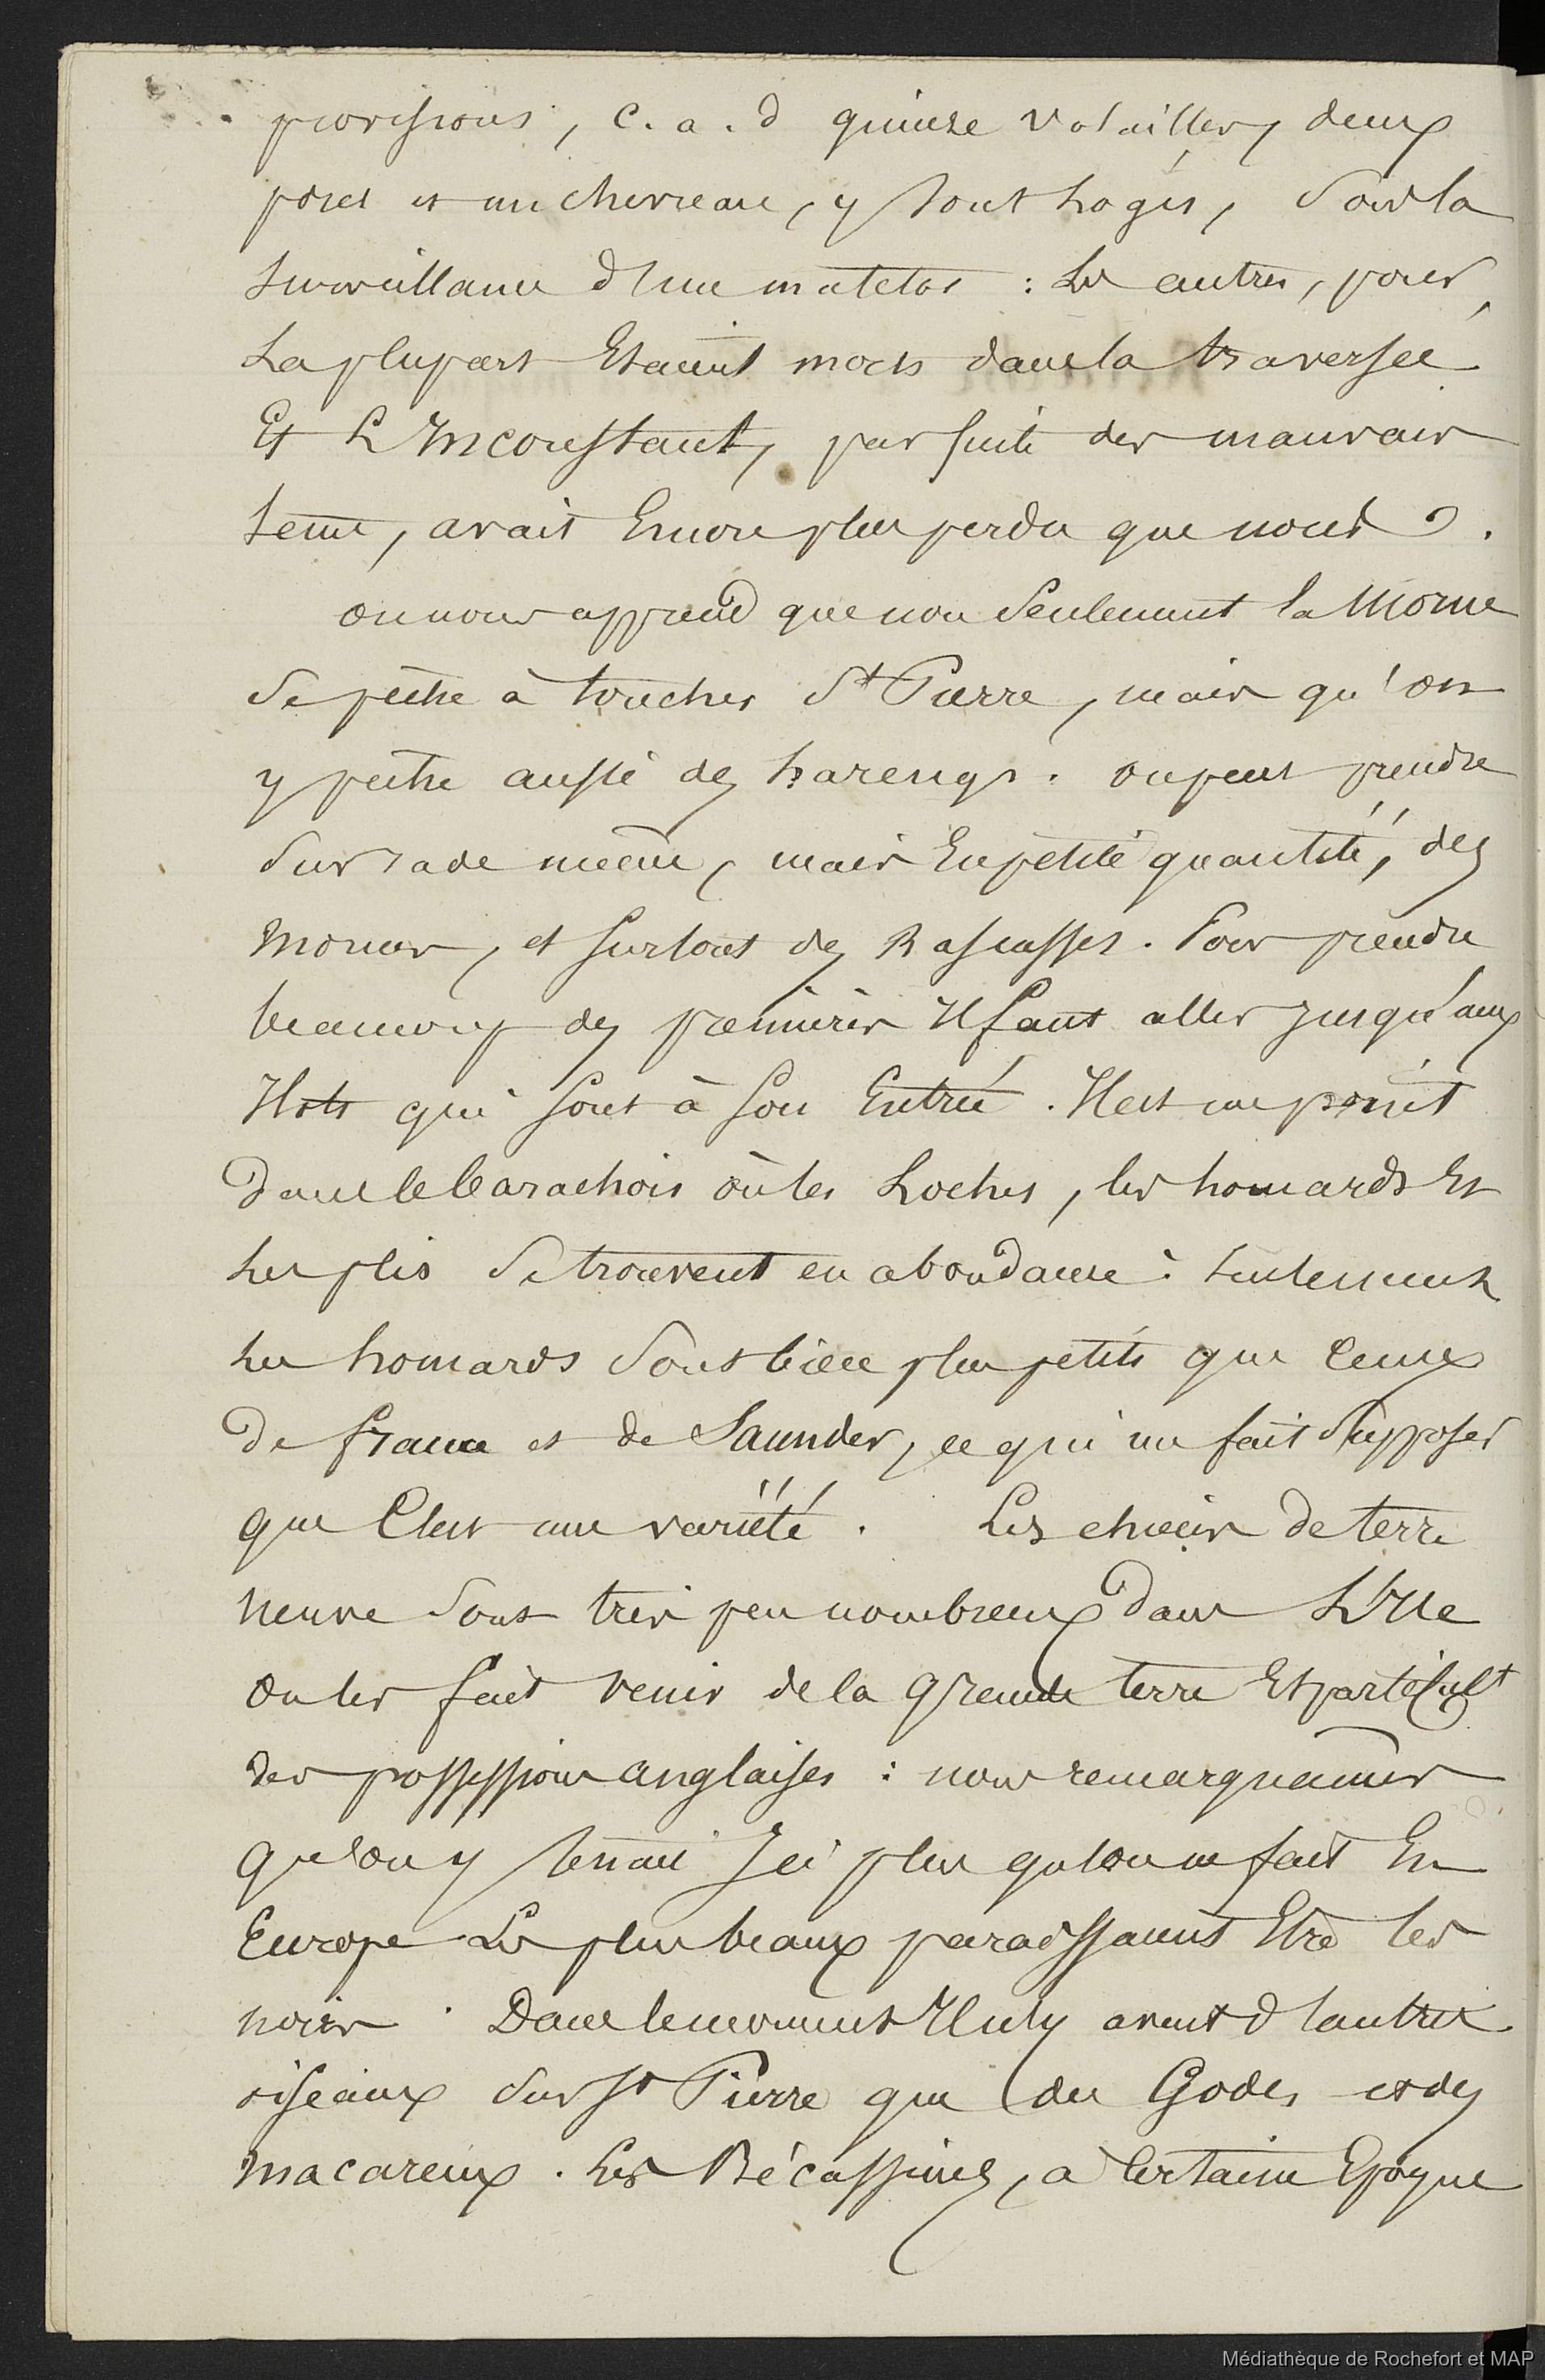 provisions, c. a. d quinze volailles, deux
porcs et un chevreau, y sont logés, sous la
surveillance d'un matelot : les autres, pour
la plupart étaient morts dans la traversée
Et L'Inconstant, par suite des mauvais
tems, avait encore plus perdu que nous ).
on nous apprend que non seulement la Morue
se pêche à toucher St Pierre, mais qu'on
y pêche aussi des harengs. on peut prendre
sur rade même, mais en petite quantité, des
morues, et surtout des Rascasses. Pour prendre
beaucoup des premières Il faut aller jusqu'aux
Ilots qui sont à son Entrée. Il est un point
dans le barachois où les Loches, les homards Et
les plis se trouvent en abondance : seulement
les homards sont bien plus petits que ceux
de france et de Saunder, ce qui me fait supposer
que C'est une variété. Les chiens de terre
neuve sont très peu nombreux dans L'Ile
on les fait venir de la grande terre Et particult
des possessions anglaises : nous remarquâmes
qu'on y tenait Ici plus qu'on ne fait En
Europe Les plus beaux paraissaient Etre les
noirs. Dans le moment Il n'y avait d'autres
oiseaux sur St Pierre que des Godes et des
macareux. Les Bécassines, a certaine Epoque
Médiathèque de Rochefort et MAP